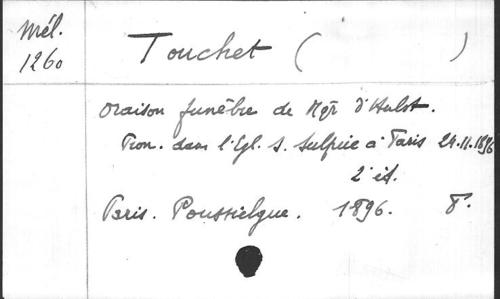 Mél.
1260
Touchet ( )
Oraison funèbre de Mgr d'Hulst.
Pron. dans l'Égl. S. Sulpice à Paris 24.11.1896
2 éd.
Paris. Poussielgue. 1896. 8°.